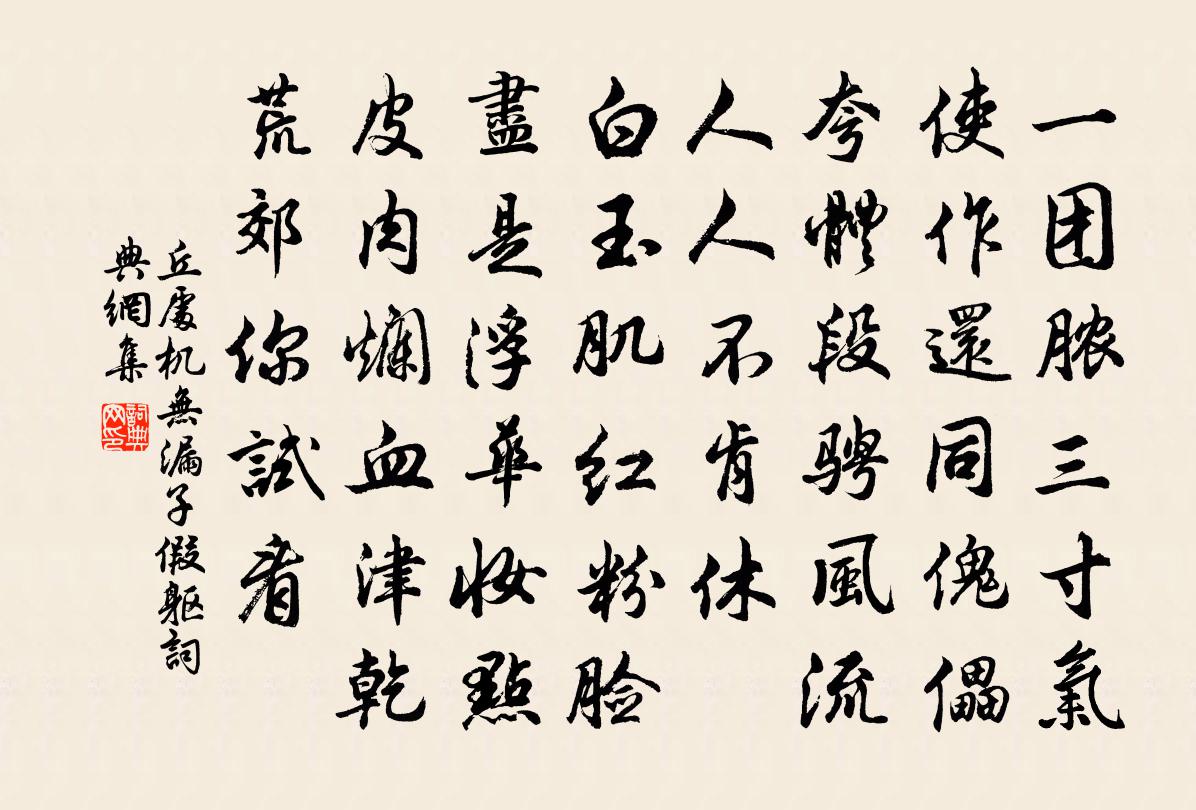 一团脓三寸氣
使作還同傀儡
夸體段骋風流
人人不肯休
白玉肌红粉脸
盡是浮華妆點
皮肉爛血津乾
荒郊你試看
丘處机無漏子假軀詞
典網集
詞典网印